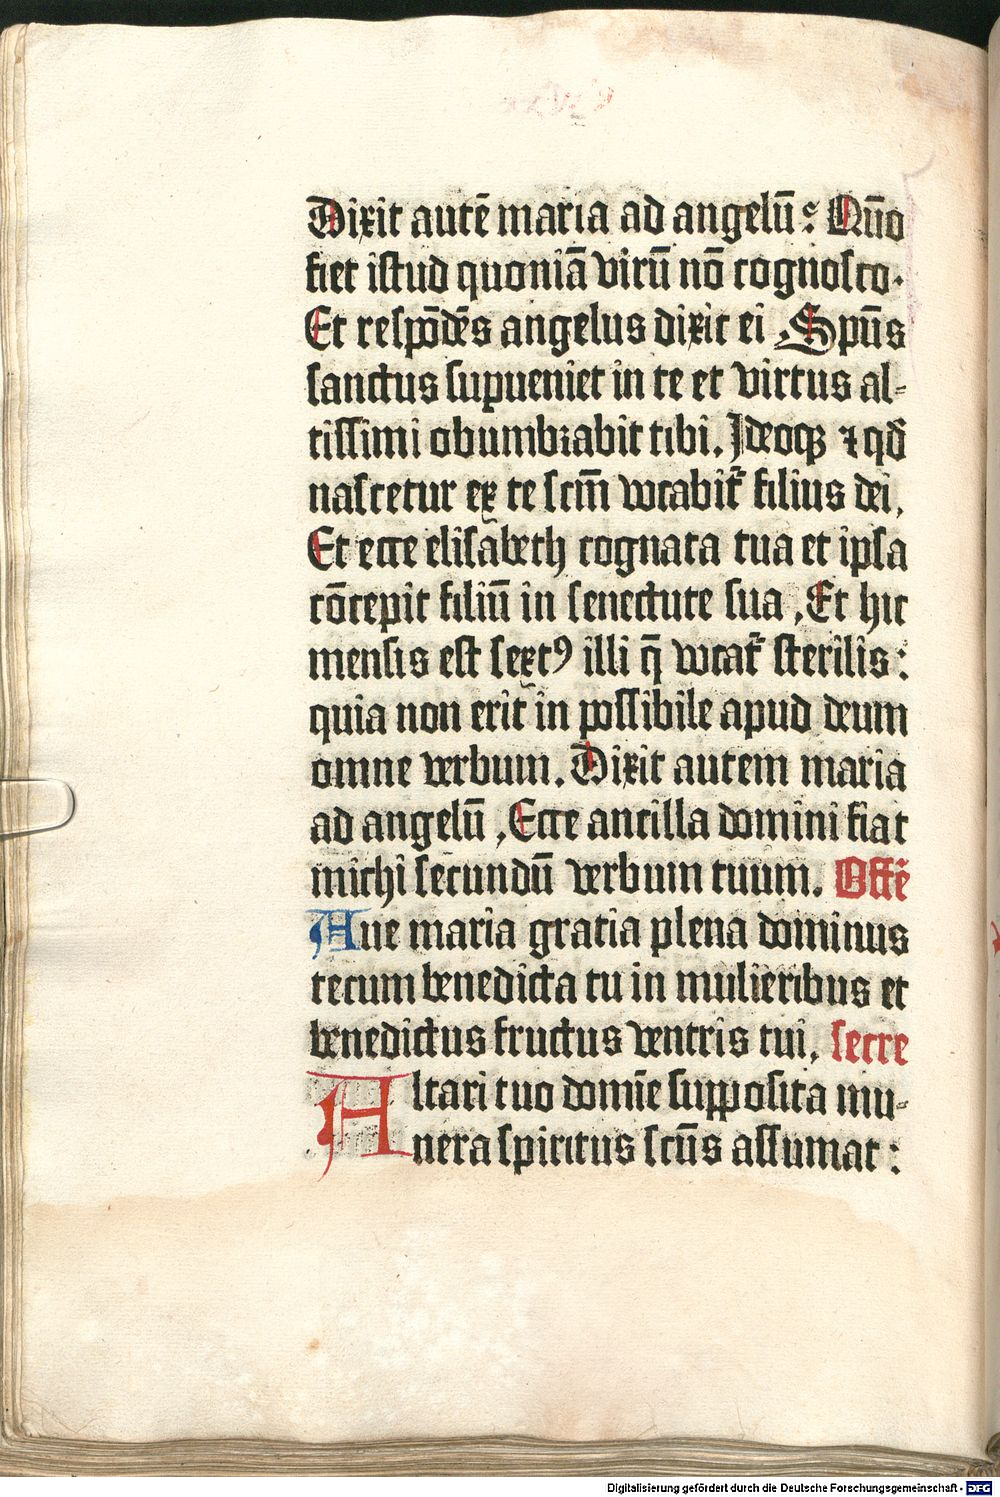 Dixit autē maria ad angelū: Quō
fiet istud quoniā virū nō cognosco.
Et respōdēs angelus dixit ei, Spūs
sanctus supueniet in te et virtus al-
tissimi obumbrabit tibi. Ideoqꝫ ⁊ qđ
nascetur ex te scm̄ vocabit᷑ filius dei,
Et ecce elisabeth cognata tua et ipsa
cōcepit filiū in senectute sua, Et hic
mensis est sextꝰ illi q̄ vocat᷑ sterilis:
quia non erit in possibile apud deum
omne verbum. Dixit autem maria
ad angelū, Ecce ancilla domini fiat
michi secundū verbum tuum. Offē
Aue maria gratia plena dominus
tecum benedicta tu in mulieribus et
benedictus fructus ventris tui, secre
Altari tuo domīe supposita mu-
nera spiritus scūs assumat:
Digitalisierung gefördert durch die Deutsche Forschungsgemeinschaft - DFG